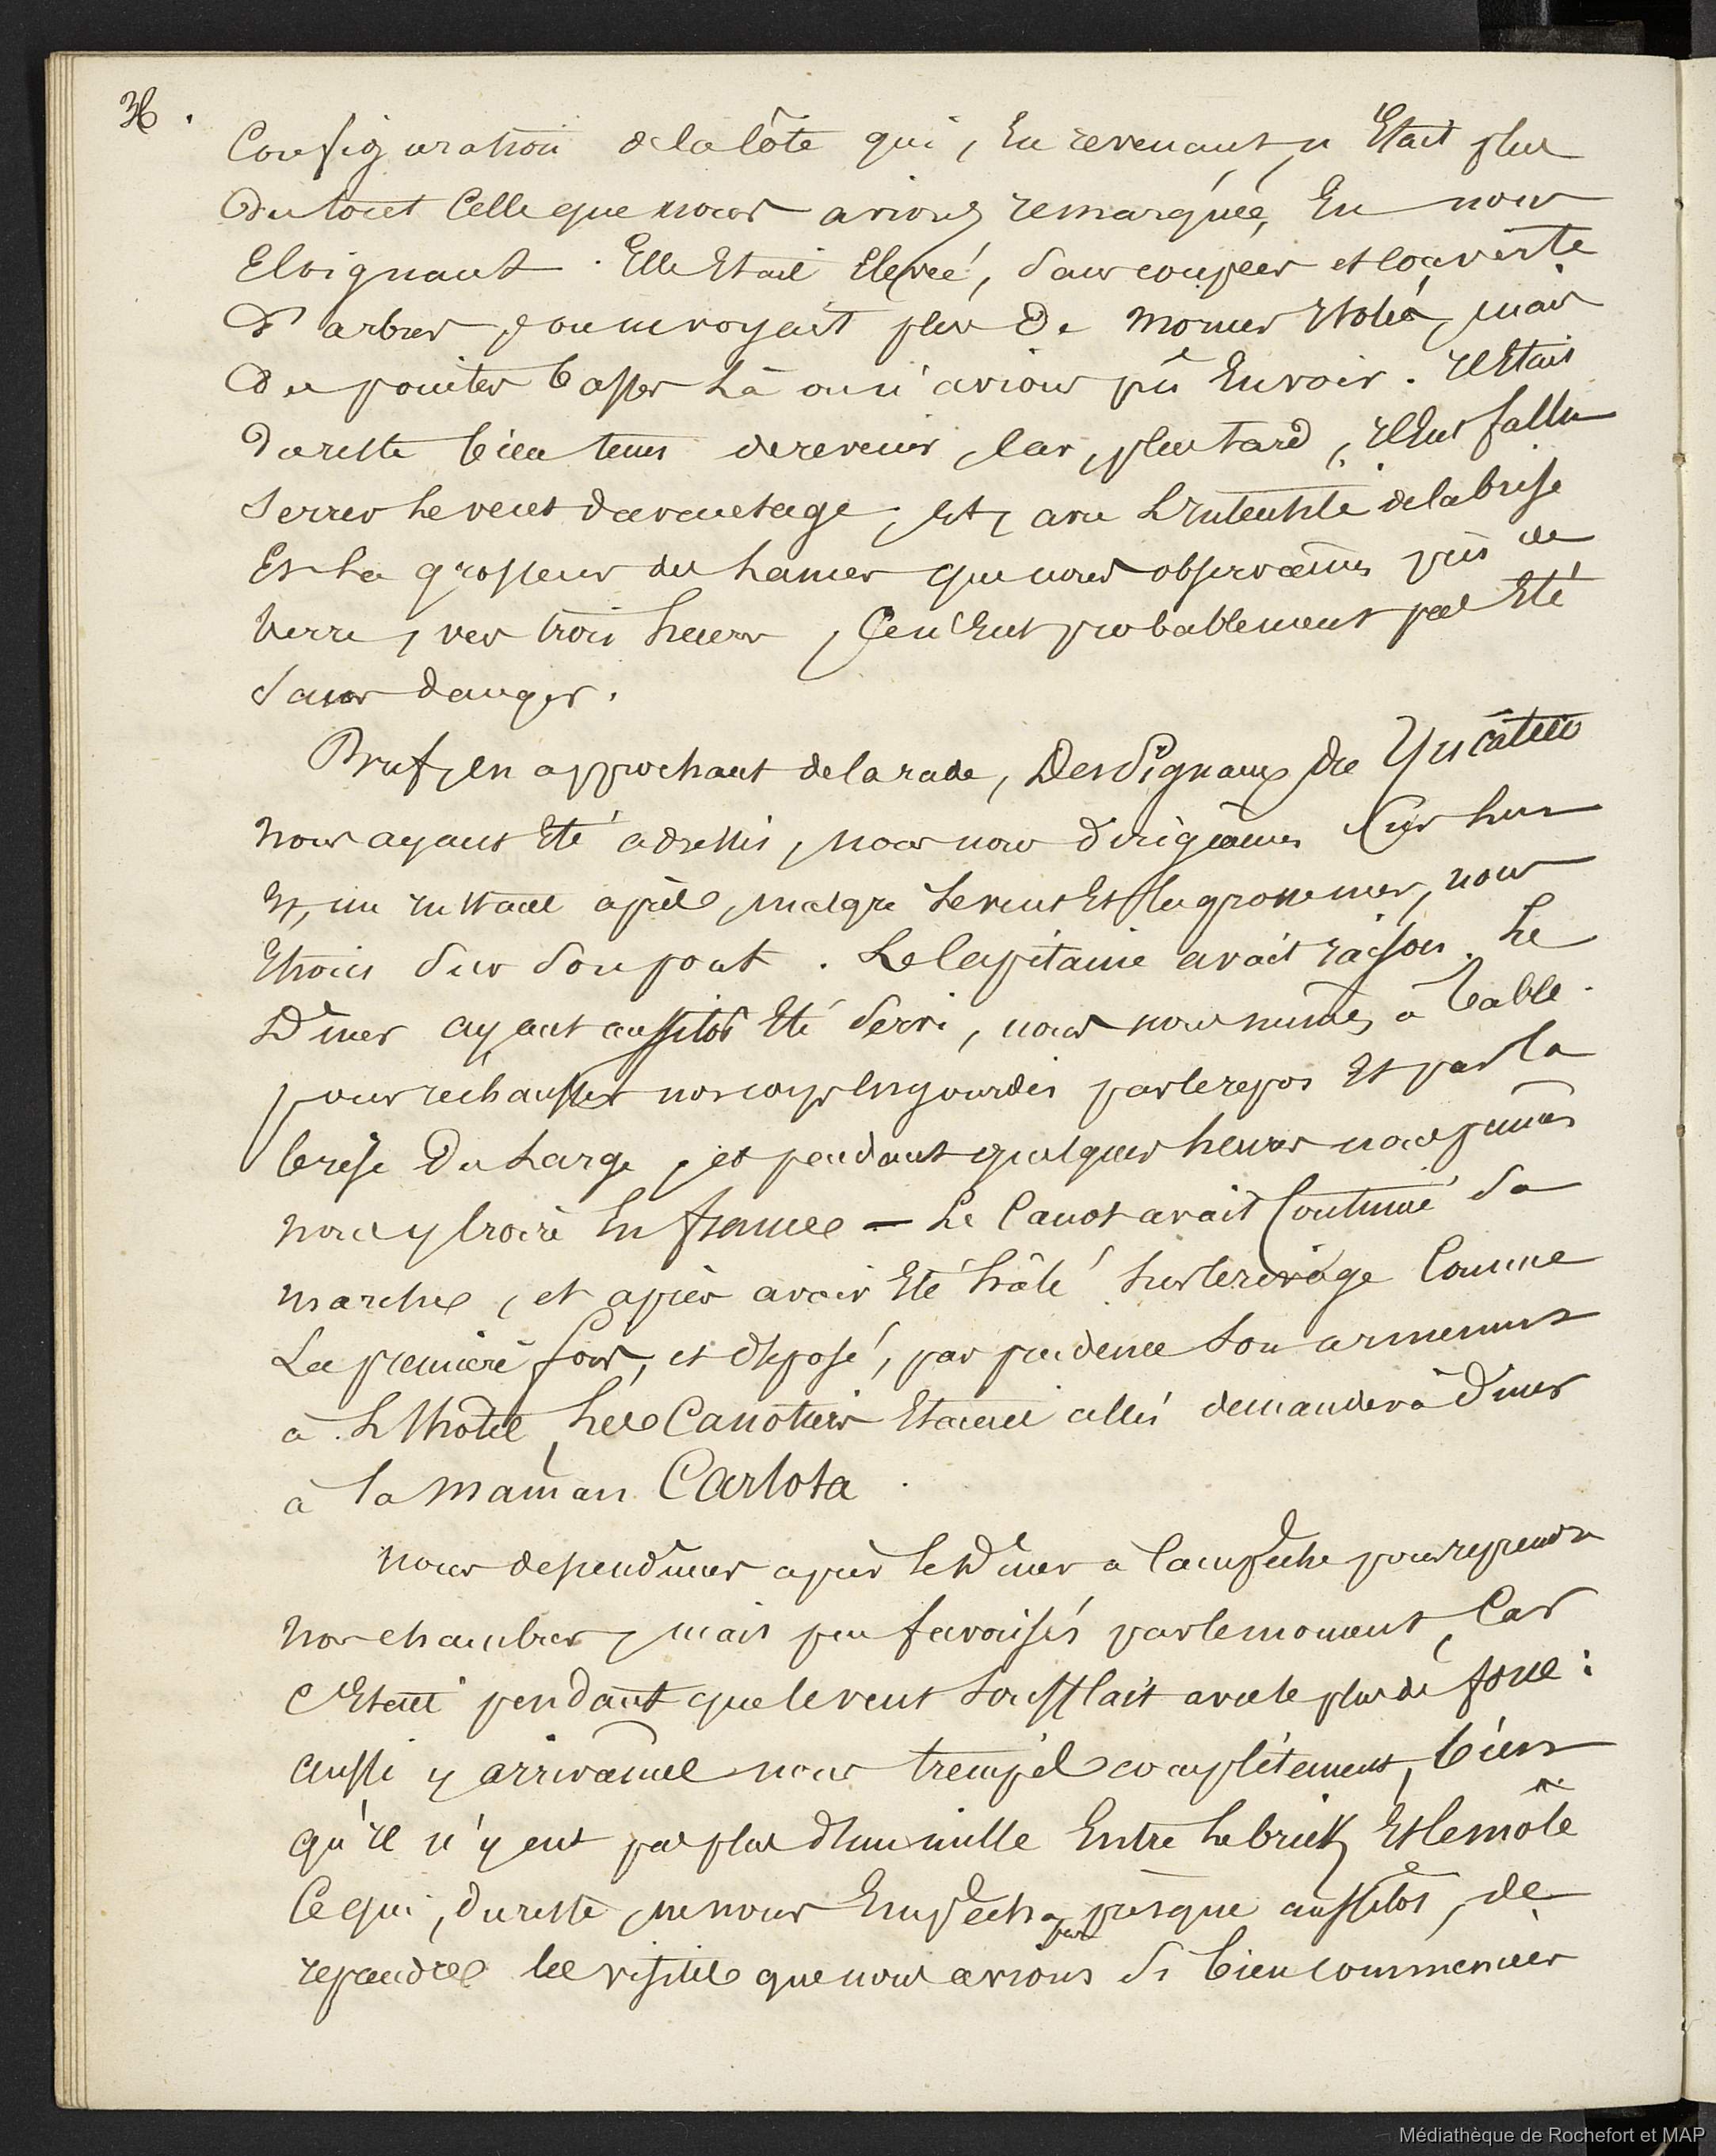 36.
Configuration de la Côte qui, En revenant, n'Etait plus
Du tout Celle que nous avions remarquée, En nous
Eloignant. Elle Etait Elevée, sans coupées et couverte
D'arbres, on ne voyait plus De mornes isolés, mais
Des pointes basses Là ou n'avions pû En voir. Il Etait
Du reste bien tems de revenir, Car, plus tard, il Eut fallu
Serrer Le vent davantage, Et, avec L'intensité de la brise
Et La grosseur des Lames que nous observâmes près de
terre, vers trois heures, Ce n'Eut probablement pas Eté
sans danger.
Bref, en approchant de la rade, Des Signaux du Yucatéco
nous ayant Eté adressés, nous nous dirigeâmes sur lui
Et, un instant après, malgré Le vent Et la grosse mer, nous
Etions sur son pont. Le Capitaine avait raison. Le
Dîner ayant aussitôt Eté servi, nous nous mîmes à Table.
pour réchauffer nos corps Engourdis par le repos Et par la
brise Du Large, et pendant quelques heures nous pûmes
nous y croire En france — Le Canot avait Continué sa
marche, et après avoir Eté hâlé sur le rivage Comme
La première fois, et déposé, par prudence son armement
à L'hôtel, Les Canotiers Etaient allés demander à Dîner
à la maman Carlota.
Nous descendîmes après le Dîner à Campêche pour reprendre
nos chambres, mais peu favorisés par le moment, Car
c'Etait pendant que le vent soufflait avec le plus de force:
aussi y arrivâmes nous trempés complètement, bien
qu'il n'y eut pas plus d'un mille Entre Le brick Et le môle
Ce qui, du reste, ne nous Empêcha pas presque aussitôt, de
reprendre les visites que nous avions si bien commencées
Médiathèque de Rochefort et MAP